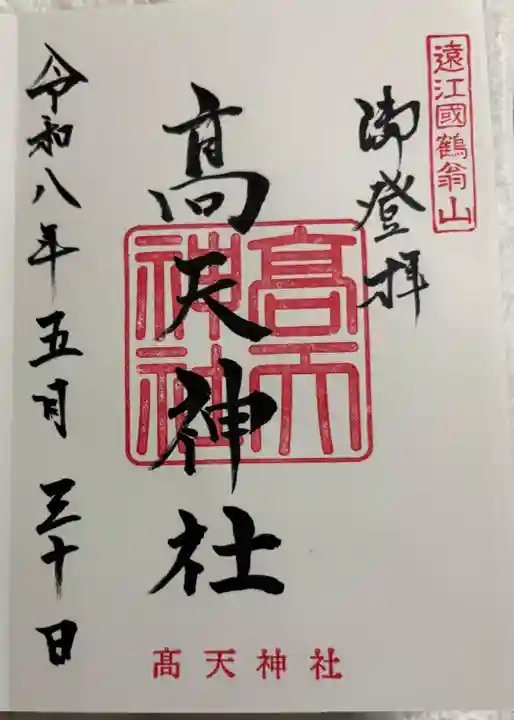 遠江國鶴翁山
御登拝
高天神社
高天神社
令和八年五月三十日
髙天神社